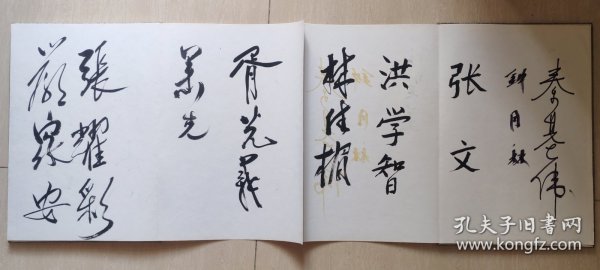 秦基伟
钟月林
张文
洪学智
林佳楣
胥光义
张耀彩
严家安
孔夫子旧书网
www.kongfz.com